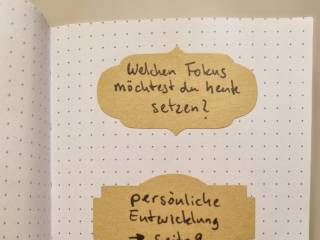 Welchen Fokus
möchtest du heute
setzen?
persönliche
Entwicklung
→ Seite